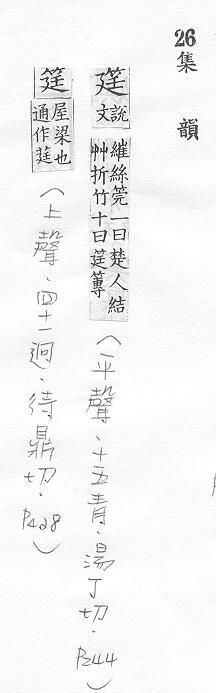 26集韻
筳說文維絲筦一曰楚人結艸折竹卜曰筳篿(平聲.十五青.湯丁切.P244)
筳屋梁也通作莛(上聲.四十一迥.待鼎切.P428)